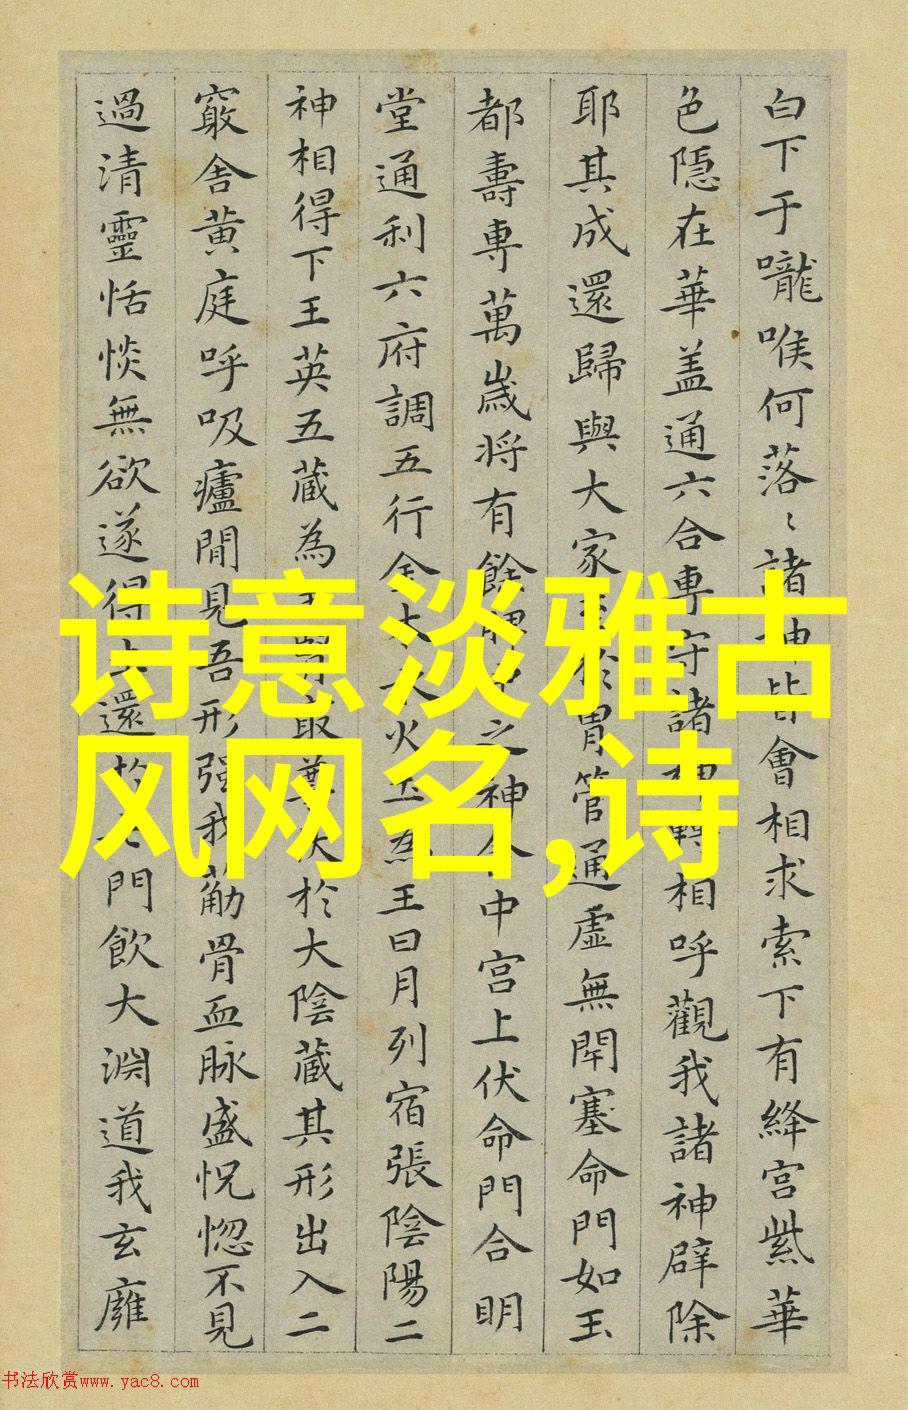 白下于嚨喉何落〻諸神皆會相求索下有絳宫紫華
色隱在華盖通六合專守諸神轉相呼觀我諸神辟除
耶其成還歸與大家至於胃管通虛無閉塞命門如玉
都壽專萬歲将有餘脾中之神舍中宫上伏命門合明
堂通利六府調五行金木水火土為王日月列宿張陰陽二
神相得下王英五蔵為主腎最尊伏於大陰蔵其形出入二
竅舍黄庭呼吸廬間見吾形强我筋骨血脉盛怳惚不見
過清靈恬惔無欲遂得大還於七門飲大渊道我玄廱
诗意淡雅古
风网名,诗
书法欣赏www.yac8.com